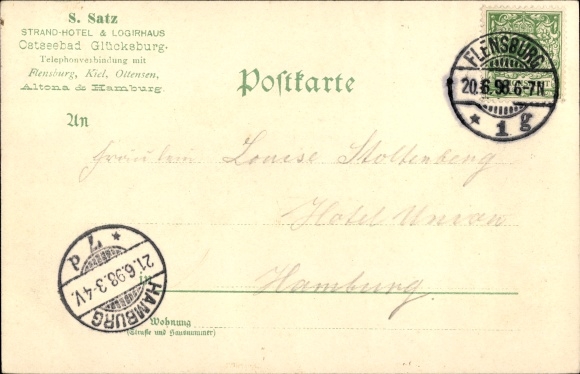 S. Satz
STRAND-HOTEL & LOGIRHAUS
Ostseebad Glücksburg.
Telephonverbindung mit
Flensburg, Kiel, Ottensen,
Altona & Hamburg.
Postkarte
FLENSBURG
20.6.98.6-7N
* 1 g
An
Fräulein Louise Stoltenberg
Hotel Union
in Hamburg
HAMBURG
21.6.98.3-4V.
Wohnung
(Straße und Hausnummer)